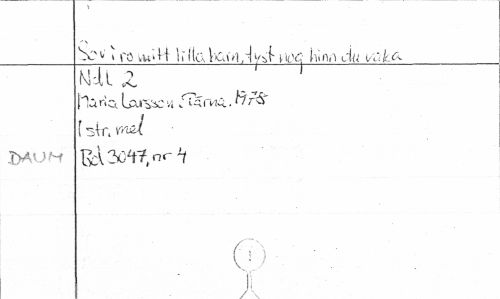 Sov i ro mitt lilla barn, tyst nog hinn du vaka
N-ll 2
Maria Larsson Tärna. 1975
1 str. mel
DAUM Bd 3047, nr 4